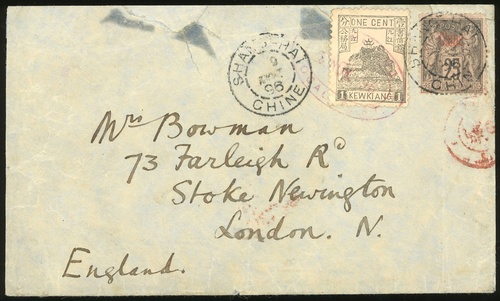 SHANG-HAI
9
96
CHINE
ONE CENT
KEWKIANG
1 1
SHANG-HAI
96
CHINE
Mrs Bowman
73 Farleigh Rd
Stoke Newington
London. N.
England.